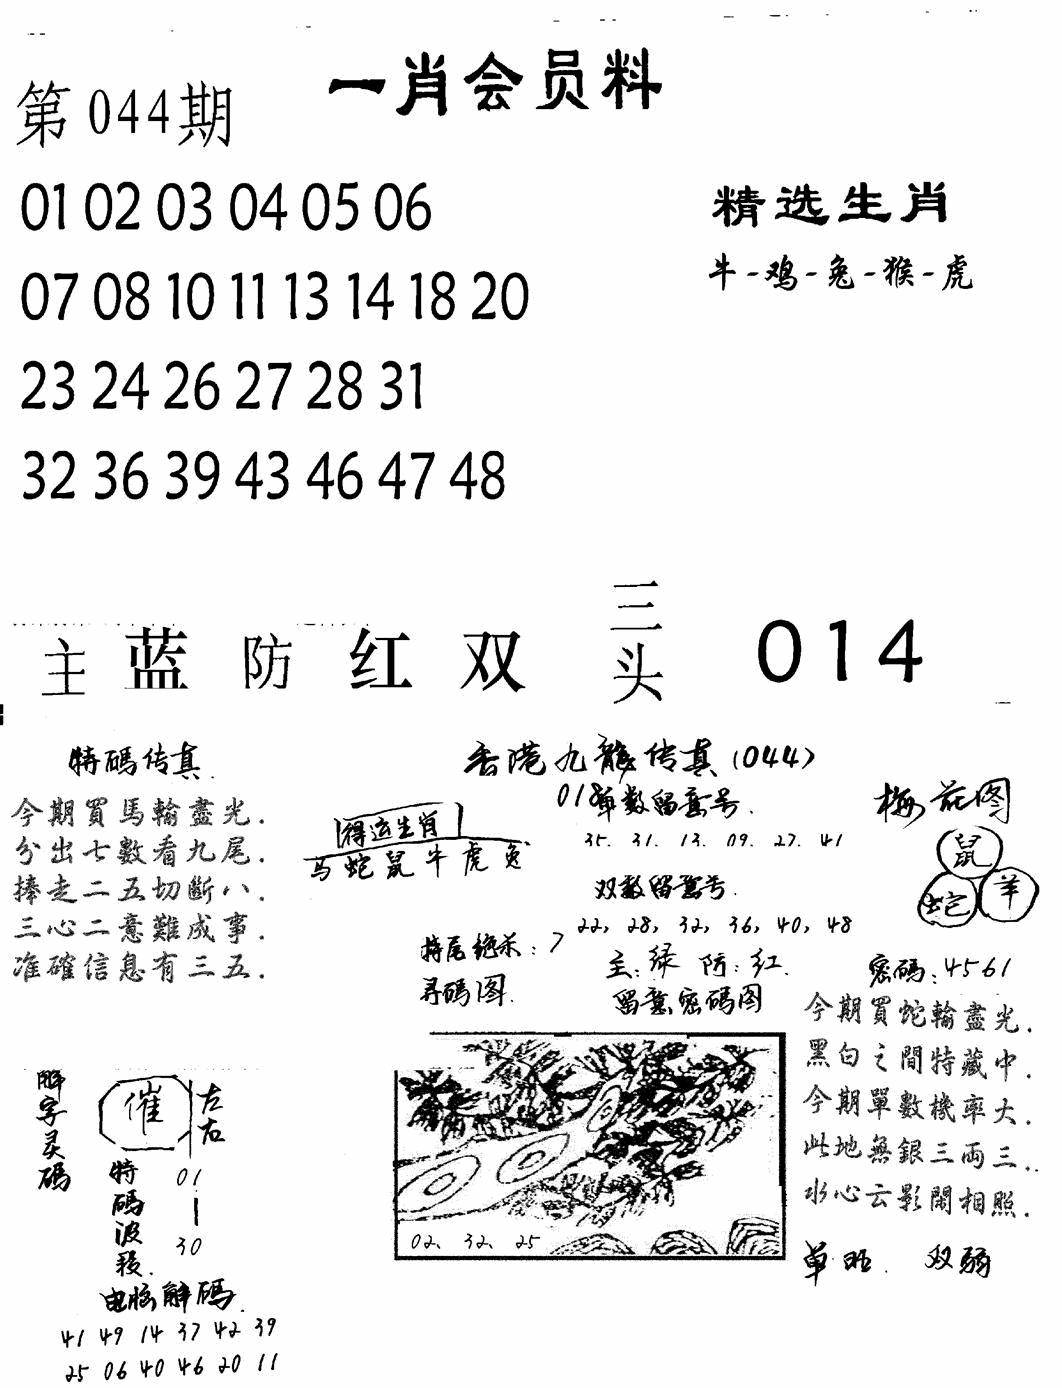 一肖会员料
第044期
01 02 03 04 05 06
07 08 10 11 13 14 18 20
23 24 26 27 28 31
32 36 39 43 46 47 48
精选生肖
牛-鸡-兔-猴-虎
主蓝防红双三头014
特碼传真
今期買馬輸盡光.
分出七數看九尾.
捧走二五切斷八.
三心二意難成事.
准確信息有三五.
香港九龍传真(044)
得运生肖
马蛇鼠牛虎兔
018单数留意号.
35. 31. 13. 09. 27. 41
双数留意号.
22, 28, 32, 36, 40, 48
特尾绝杀: 7
主:绿 防:红.
寻码图.
留意密码图
02、32、25
梅花图
鼠
蛇
羊
密码:4561
今期買蛇輸盡光.
黑白之間特藏中.
今期單數機率大.
此地無銀三両三..
水心云影閑相照.
单旺. 双弱
解字灵碼
催
左右
特碼波段.
01-30
电脑解碼.
41 49 14 37 42 39
25 06 40 46 20 11